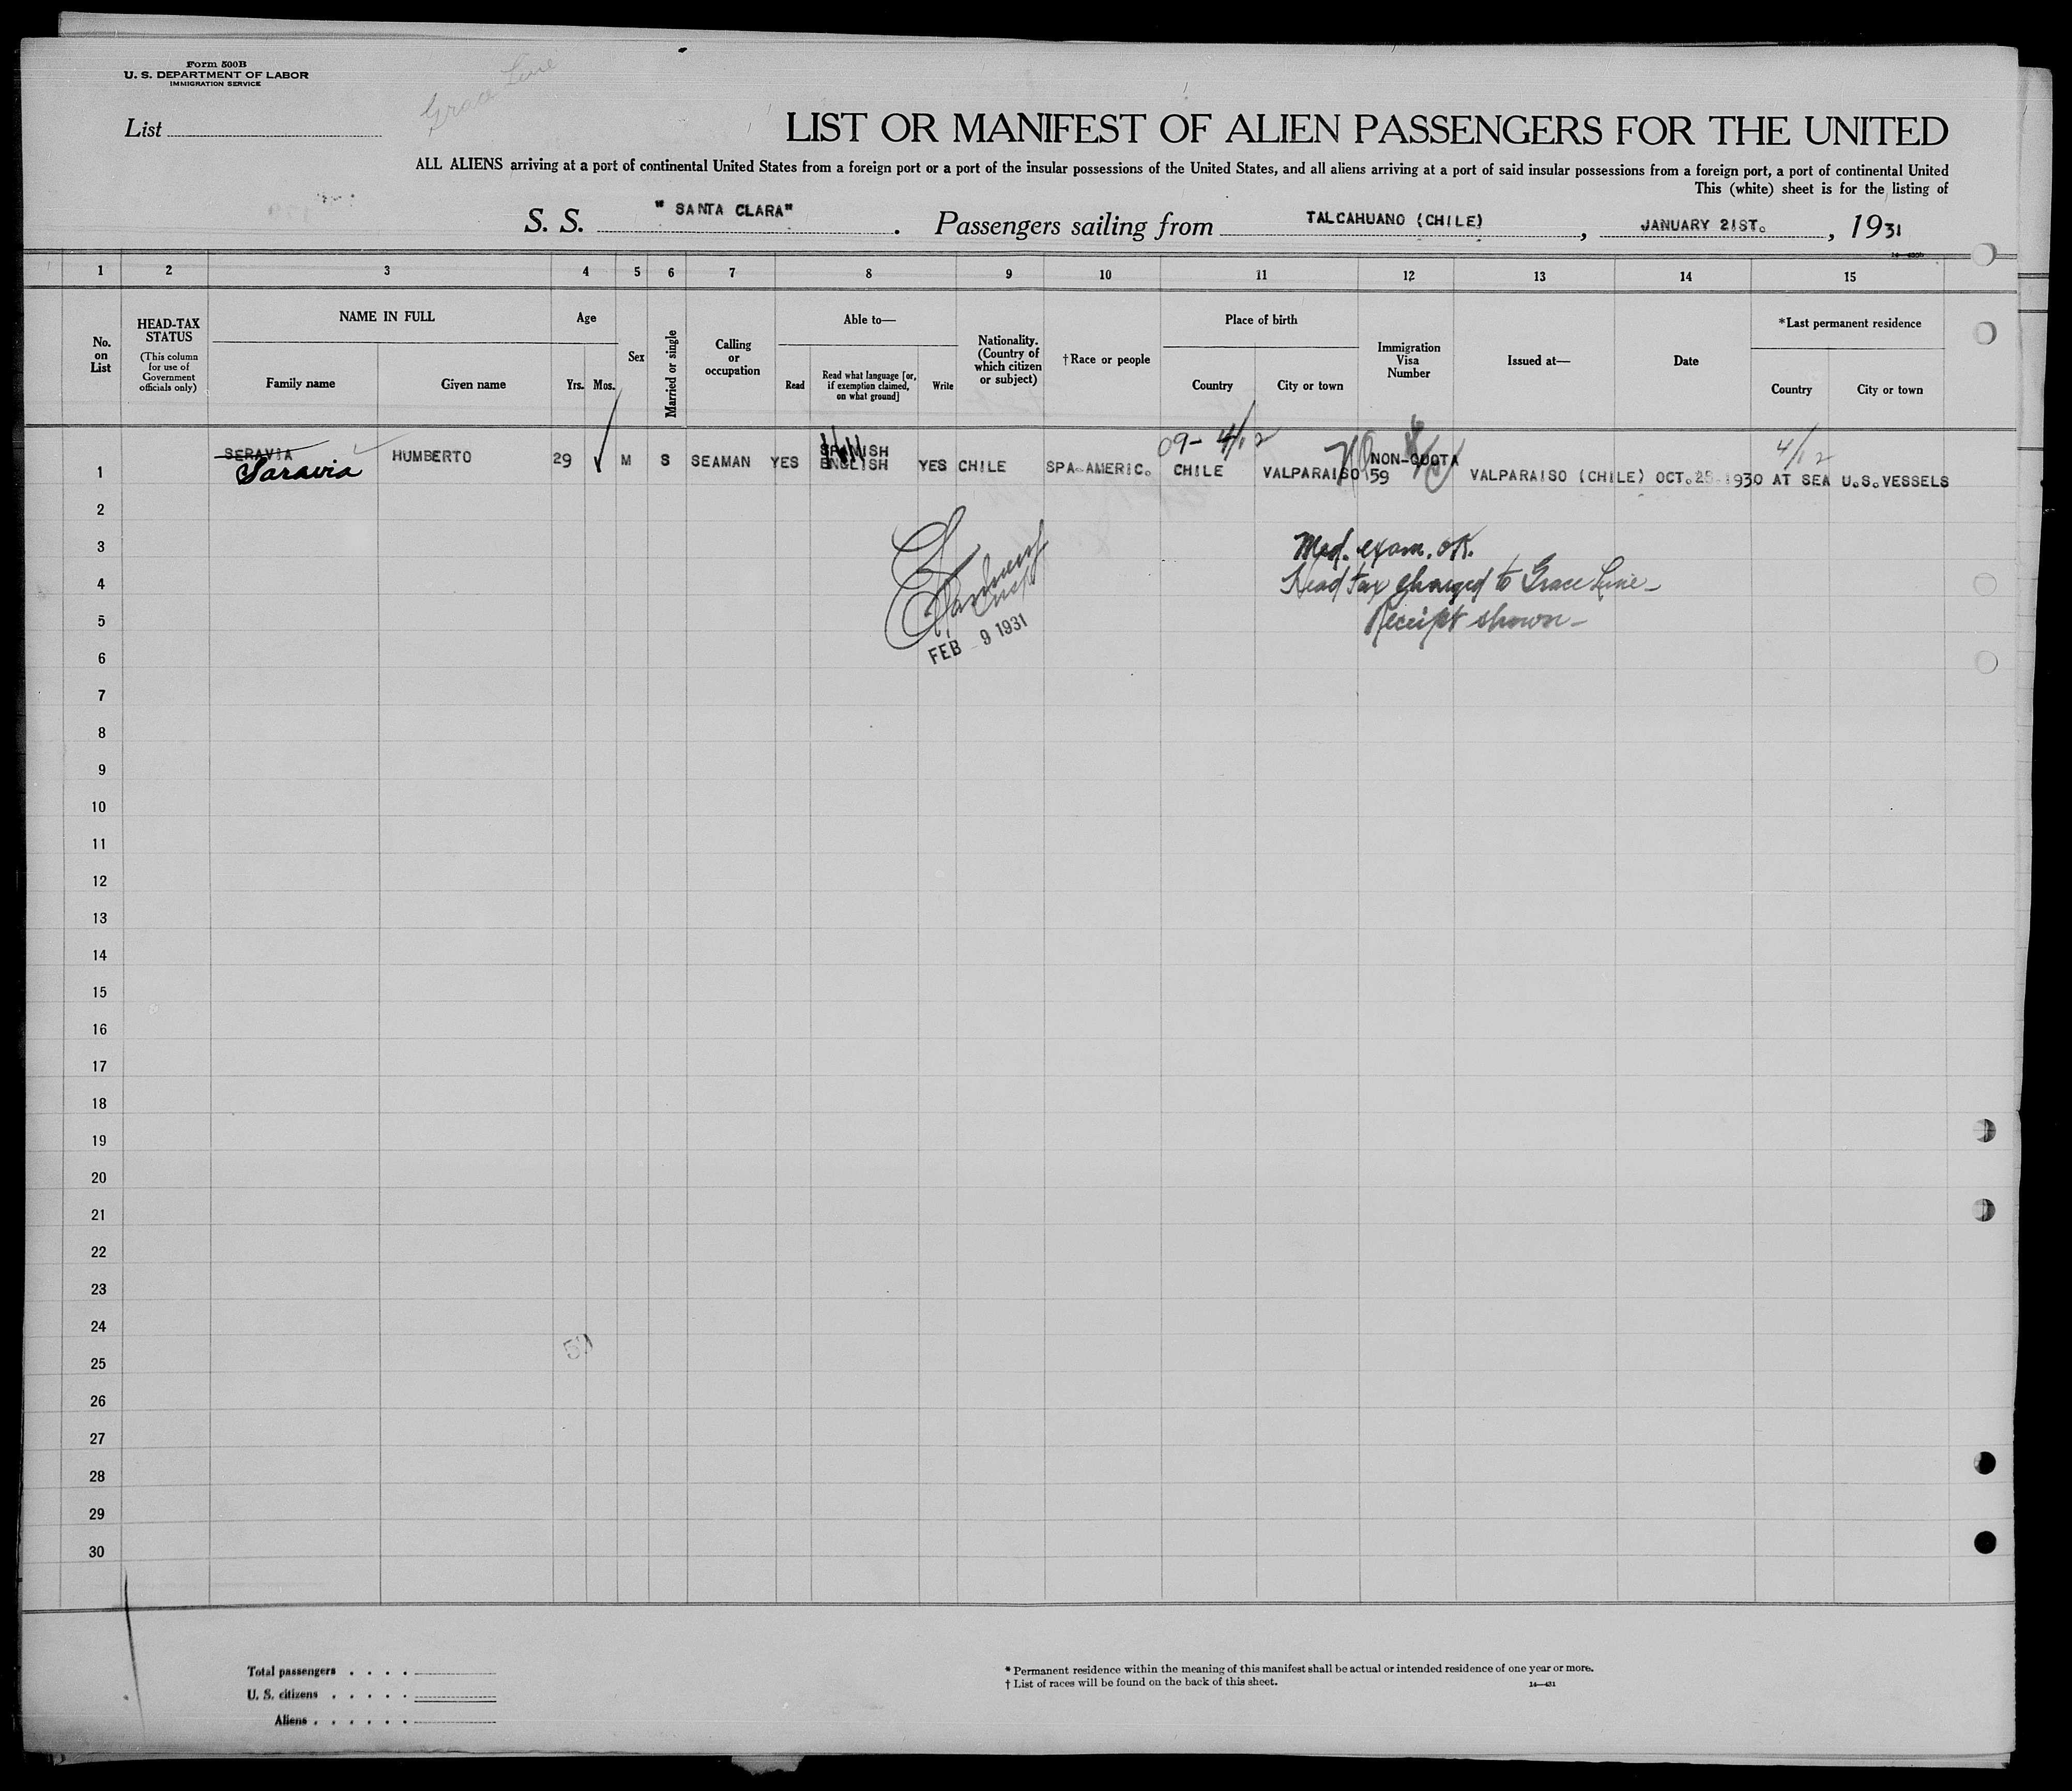 Form 500B
U. S. DEPARTMENT OF LABOR
IMMIGRATION SERVICE
Grace Line
List
LIST OR MANIFEST OF ALIEN PASSENGERS FOR THE UNITED
ALL ALIENS arriving at a port of continental United States from a foreign port or a port of the insular possessions of the United States, and all aliens arriving at a port of said insular possessions from a foreign port, a port of continental United
This (white) sheet is for the listing of
S. S. "SANTA CLARA". Passengers sailing from TALCAHUANO (CHILE), JANUARY 21ST., 1931
1 2 3 4 5 6 7 8 9 10 11 12 13 14 15
No. on List
HEAD-TAX STATUS
(This column for use of Government officials only)
NAME IN FULL
Family name
Given name
Age
Yrs. Mos.
Sex
Married or single
Calling or occupation
Able to—
Read
Read what language [or, if exemption claimed, on what ground]
Write
Nationality. (Country of which citizen or subject)
†Race or people
Place of birth
Country
City or town
Immigration Visa Number
Issued at—
Date
*Last permanent residence
Country
City or town
09- 4/12
4/12
1 SERAVIA Saravia HUMBERTO 29 M S SEAMAN YES SPANISH ENGLISH YES CHILE SPA-AMERIC. CHILE VALPARAISO NON-QUOTA 59 VALPARAISO (CHILE) OCT. 25 1930 AT SEA U.S. VESSELS
2
3 Med. exam. OK.
4 Head tax charged to Grace Line-
5 Receipt shown-
FEB 9 1931
6
7
8
9
10
11
12
13
14
15
16
17
18
19
20
21
22
23
24
25
26
27
28
29
30
Total passengers . . . .
U. S. citizens . . . . .
Aliens . . . . . .
* Permanent residence within the meaning of this manifest shall be actual or intended residence of one year or more.
† List of races will be found on the back of this sheet.
14—431